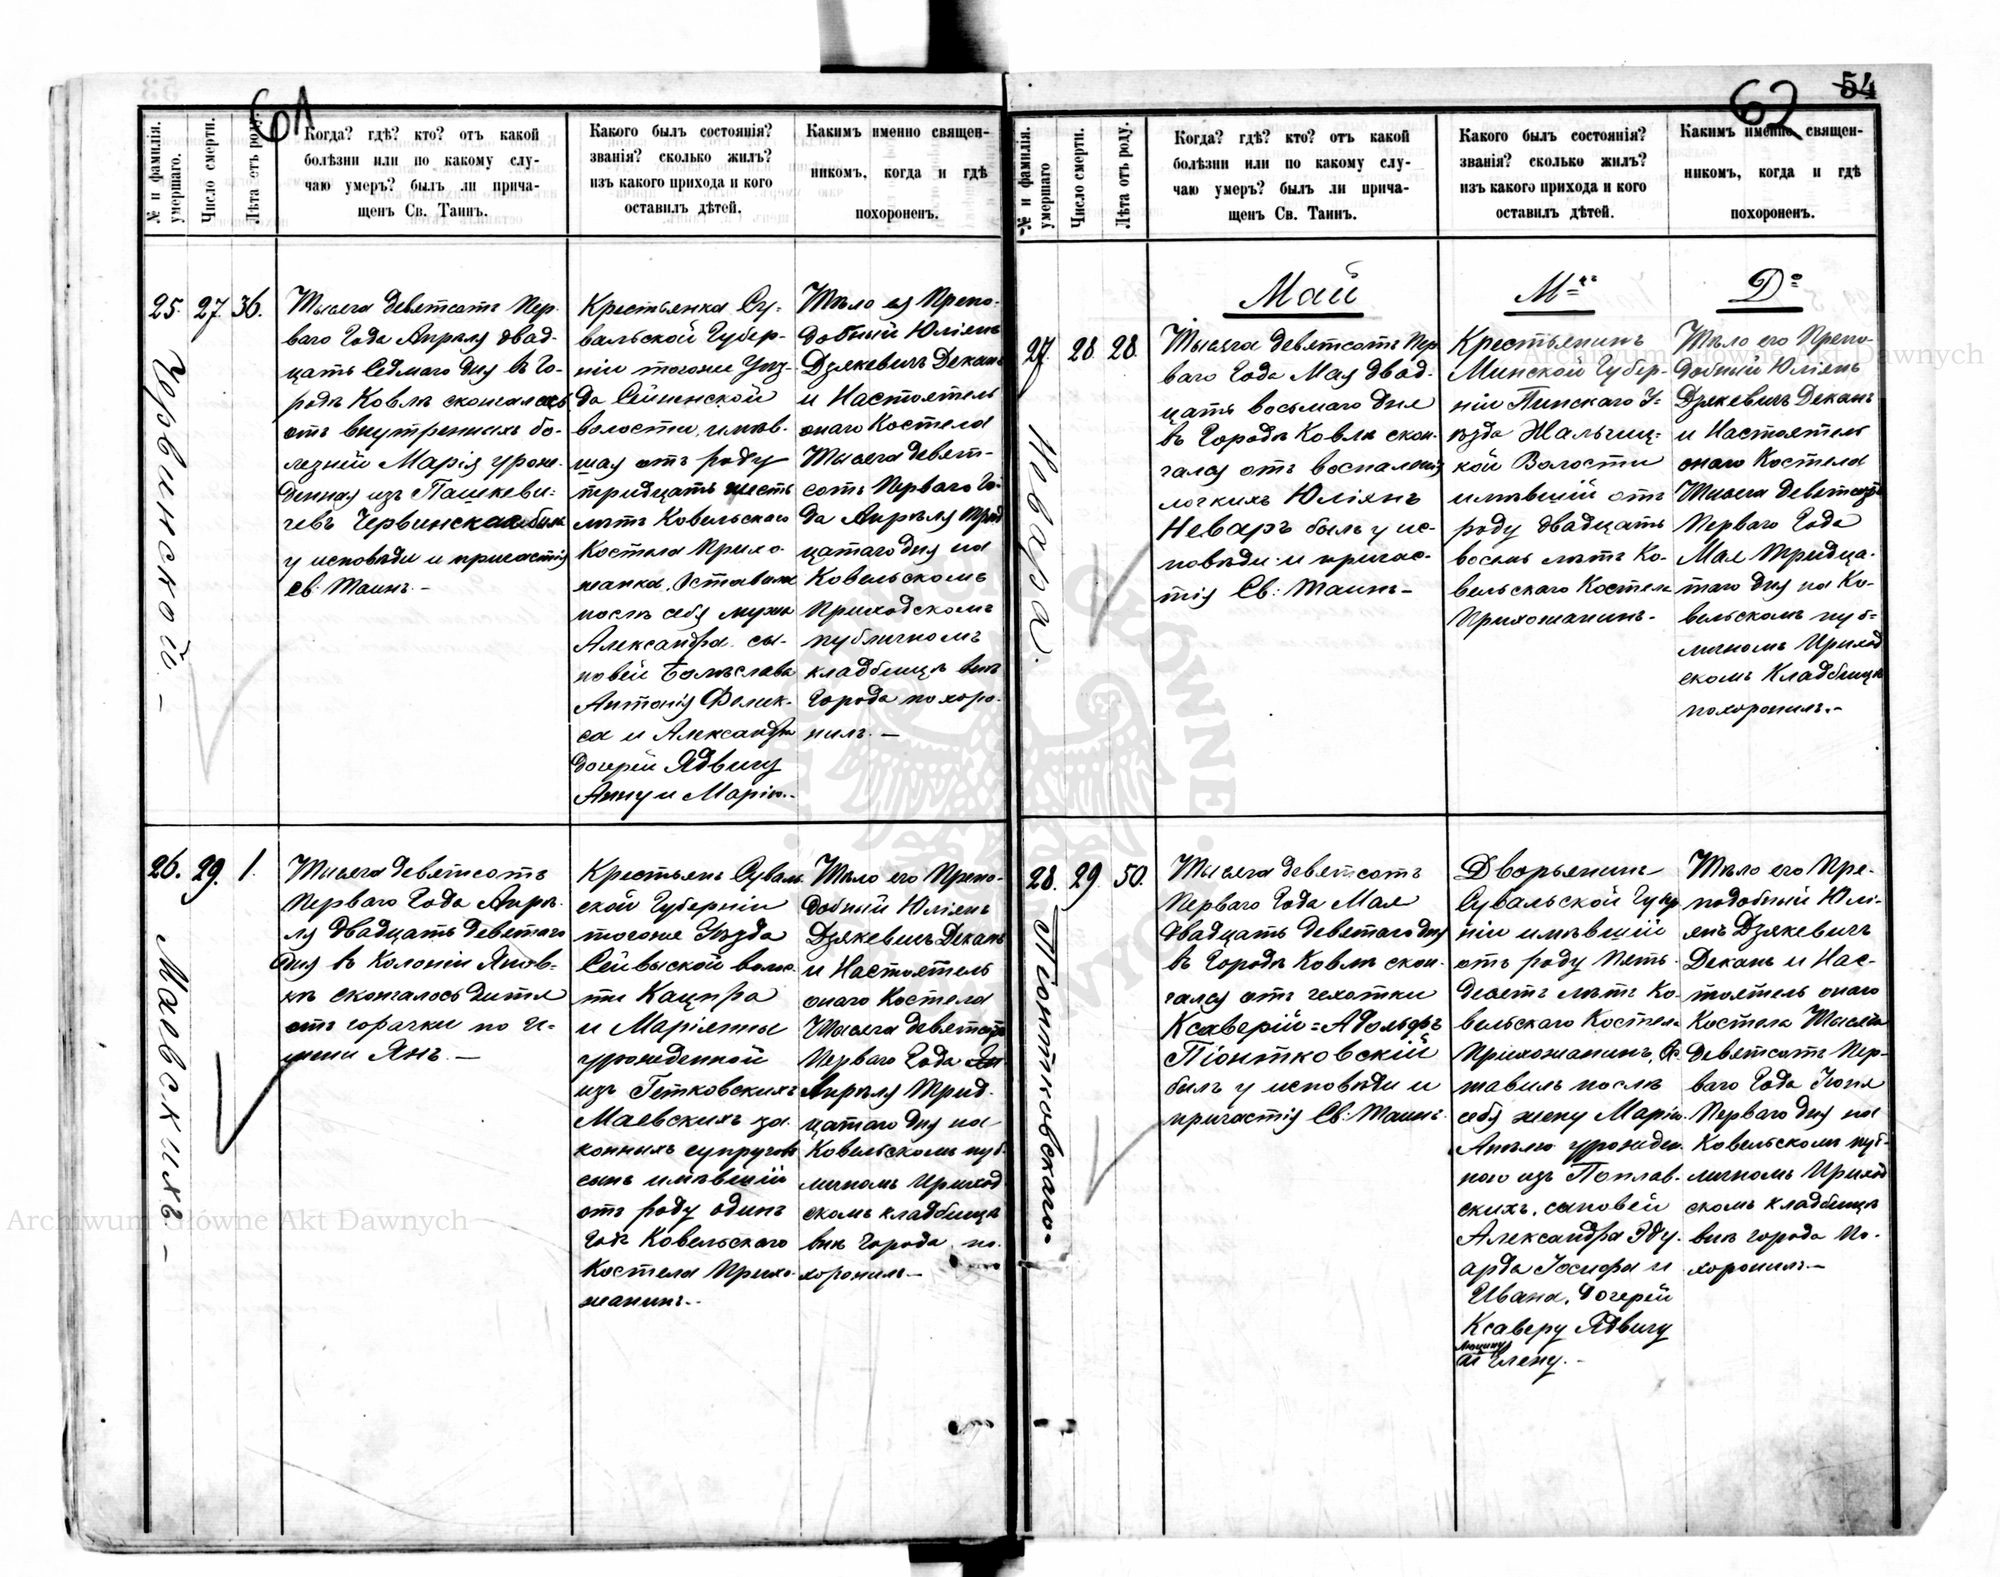 61
№ и фамилія. умершаго.
Число смерти.
Лѣта отъ роду.
Когда? гдѣ? кто? отъ какой
болѣзни или по какому слу-
чаю умеръ? былъ ли прича-
щенъ Св. Таинъ.
Какого былъ состоянія?
званія? сколько жилъ?
изъ какого прихода и кого
оставилъ дѣтей.
Какимъ именно священ-
никомъ, когда и гдѣ
похороненъ.
25. 27. 36.
Червинской. –
Тысяча девятсотъ Пер-
ваго Года Апрѣля двад-
цать Седмаго дня въ Го-
родѣ Ковлѣ скончалась
отъ внутреннихъ бо-
лезней Марія урож-
денная изъ Пашкеви-
чевъ Червинская была
у исповѣди и причастія
Св. Таинъ. –
Крестьянка Су-
вальской Губер-
ніи тогоже Уѣз-
да Сейненской
волости, имѣв-
шая отъ роду
тридцать шесть
лѣтъ Ковельскаго
Костела Прихо-
жанка. Оставила
послѣ себя мужа
Александра. сы-
новей Болеслава
Антонія Фелик-
са и Александра
дочерей Ядвигу
Анну и Марію. -
Тѣло ея Препо-
добный Юліянъ
Дзякевичъ Деканъ
и Настоятель
онаго Костела
Тысяча девят-
сотъ Перваго Го-
да Апрѣля Трид
цатаго дня на
Ковельскомъ
Приходскомъ
публичномъ
кладбищѣ внѣ
Города похоро-
нилъ. –
26. 29. 1.
Маевскихъ –
Тысяча девятсотъ
Перваго Года Апрѣ-
ля двадцать девятаго
дня въ Колоніи Янов-
кѣ скончалось дитя
отъ горачки по и-
мени Янъ. –
Крестьянъ Суваль
ской Губерніи
тогоже Уѣзда
Сейвыской волос
ти Кацпра
и Маріянны
урожденной
изъ Гетковскихъ
Маевскихъ за-
конныхъ супруговъ
сынъ имѣвшій
отъ роду одинъ
годъ Ковельскаго
Костела Прихо-
жанинъ. -
Тѣло его Препо-
добный Юліянъ
Дзякевичъ Деканъ
и Настоятель
онаго Костела
Тысяча девятсотъ
Перваго Года
Апрѣля Трид-
цатаго дня на
Ковельскомъ пуб-
личномъ Приход
скомъ кладбищѣ
внѣ Города по-
хоронилъ –
62 54
№ и фамилія. умершаго
Число смерти.
Лѣта отъ роду.
Когда? гдѣ? кто? отъ какой
болѣзни или по какому слу-
чаю умеръ? былъ ли прича-
щенъ Св. Таинъ.
Какого былъ состоянія?
званія? сколько жилъ?
изъ какого прихода и кого
оставилъ дѣтей.
Какимъ именно священ-
никомъ, когда и гдѣ
похороненъ.
Май
27. 28. 28.
Невара.
Тысяча девятсотъ Пер
ваго Года Мая двад-
цать восьмаго дня
въ Городѣ Ковлѣ скон-
чался отъ воспаленія
легкихъ Юліянъ
Неваръ былъ у ис-
повѣди и причас-
тія Св. Таинъ –
Крестьянинъ
Минской Губер-
ніи Пинскаго У-
ѣзда Жальчиц-
кой Волости
имѣвшій отъ
роду двадцать
восемь лѣтъ Ко-
вельскаго Костела
Прихожанинъ. -
Тѣло его Препо-
добный Юліянъ
Дзякевичъ Деканъ
и Настоятель
онаго Костела
Тысяча девятсотъ
Перваго Года
Мая Тридца-
таго дня на Ко-
вельскомъ пуб-
личномъ Приход
скомъ Кладбищѣ
похоронилъ. –
28. 29. 50.
Піонтковскаго. -
Тысяча девятсотъ
Перваго Года Мая
двадцать девятаго дня
въ Городѣ Ковлѣ скон-
чался отъ чехотки
Ксаверій=Адольфъ
Піонтковскій
былъ у исповѣди и
причастія Св. Таинъ.
Дворянинъ
Сувальской Губер
ніи имѣвшій
отъ роду Пять-
десятъ лѣтъ Ко-
вельскаго Костела
Прихожанинъ. Ос
тавилъ послѣ
себя жену Марію
Анелю урожден-
ною изъ Поплав-
скихъ. сыновей
Александра Эду-
арда Іосифа и
Ивана. дочерей
Ксаверу Ядвигу
Люцину
и Елену. -
Тѣло его Пре-
подобный Юлі-
янъ Дзякевичъ
Деканъ и Нас-
тоятель онаго
Костела Тысяча
девятсотъ Пер-
ваго Года Іюня
Перваго дня на
Ковельскомъ пуб-
личномъ Приход
скомъ кладбищѣ
внѣ города по-
хоронилъ –
Archiwum Główne Akt Dawnych
Archiwum Główne Akt Dawnych